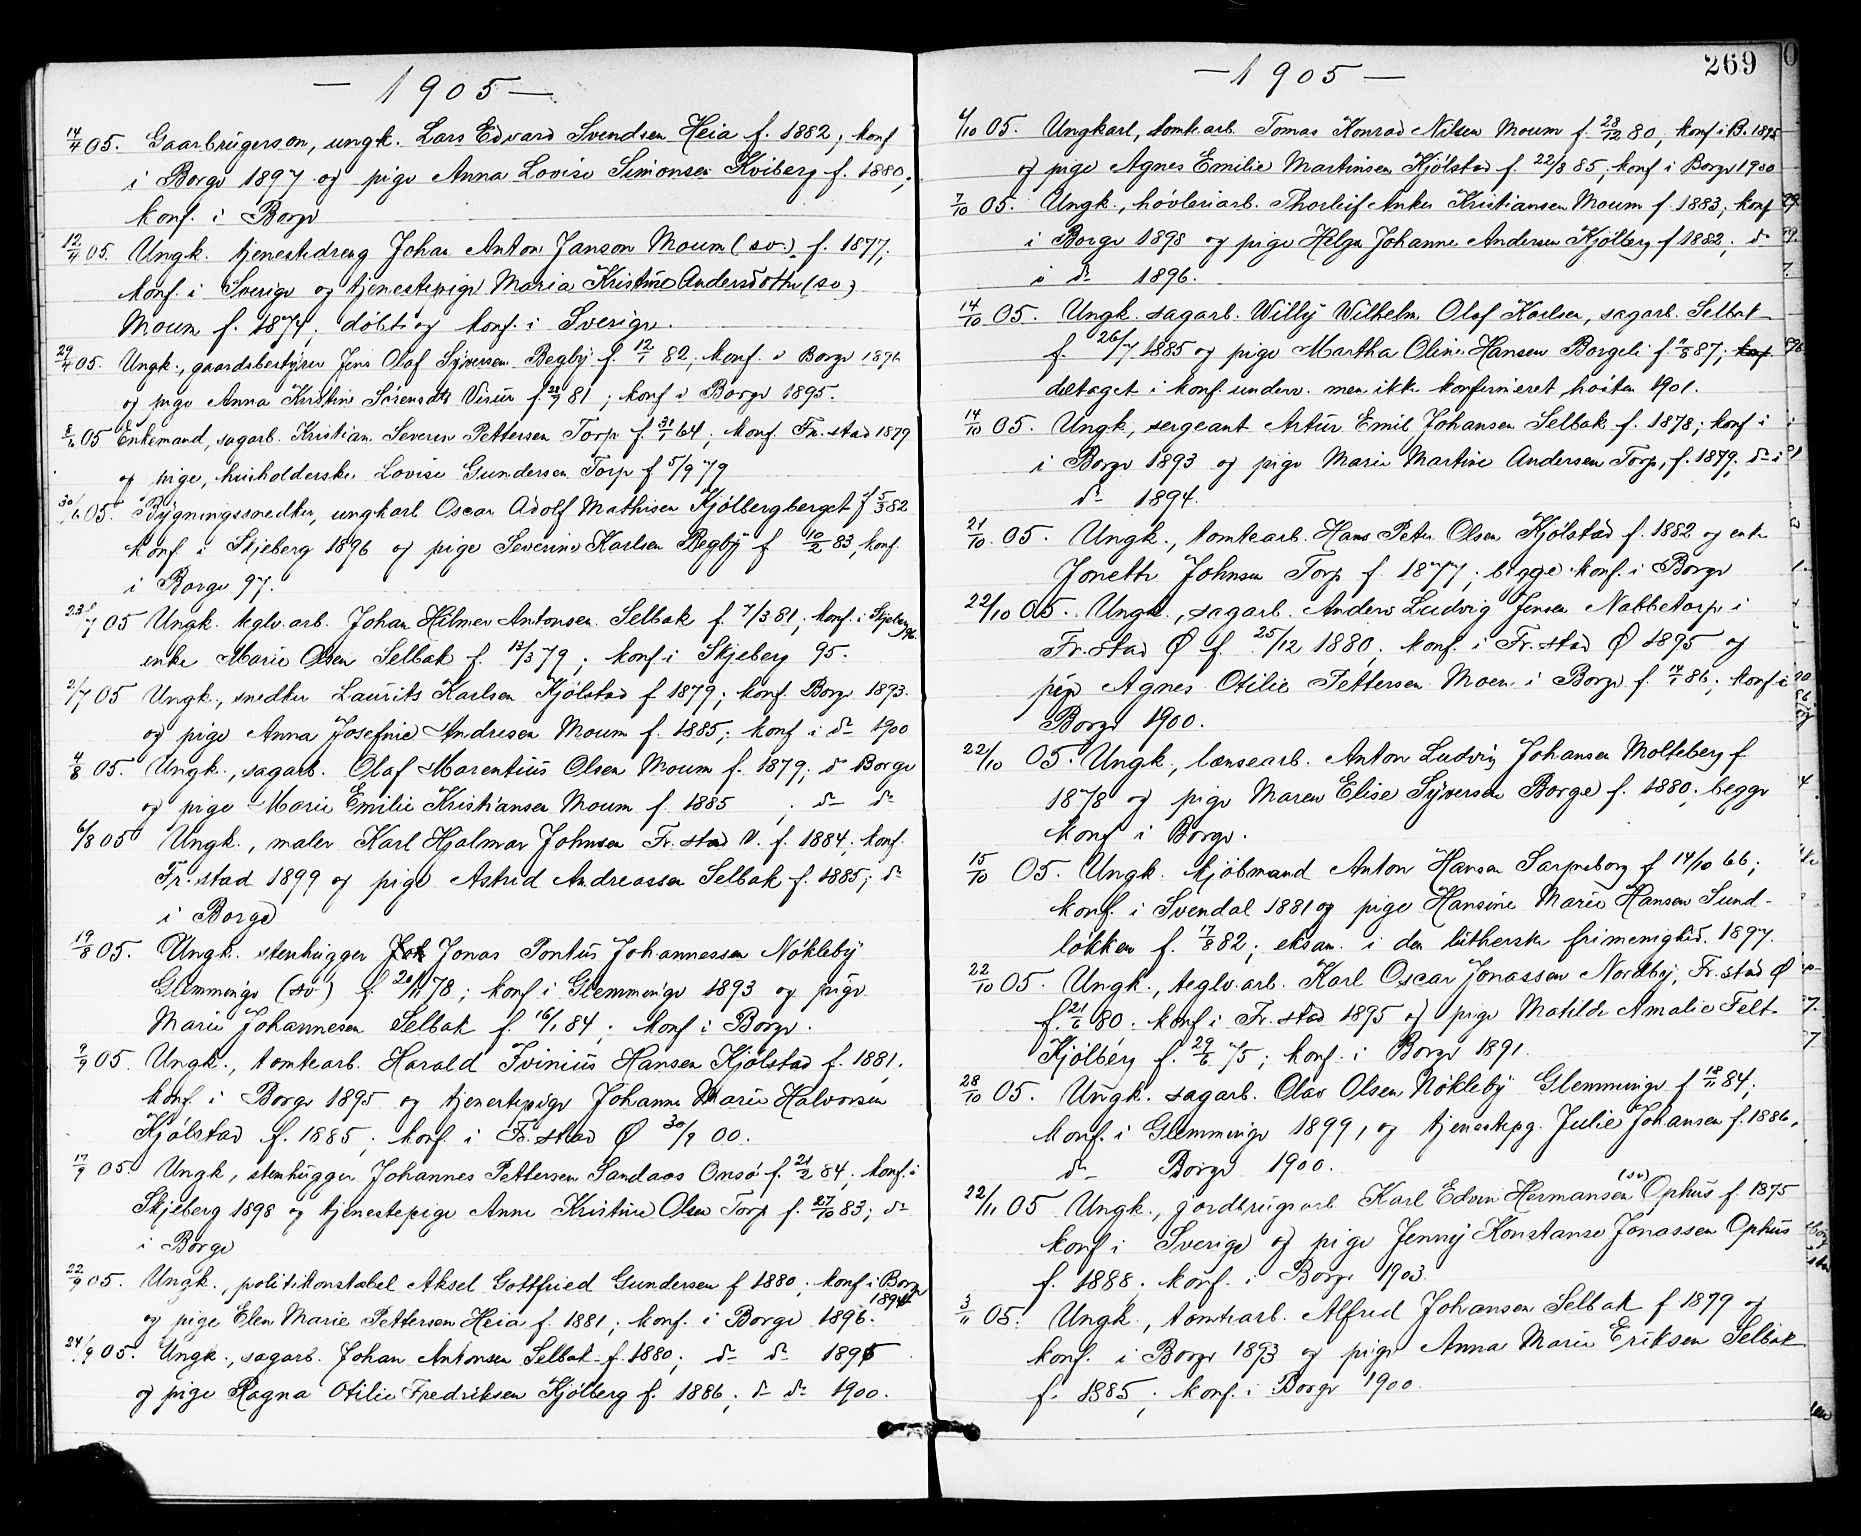 — 1905 —
14/4 05. Gaarbrugerson, ungk. Lars Edvard Svendsen Heia f. 1882; konf
i Borge 1897 og pige Anna Lovise Simonsen Kviberg f. 1880,
konf. i Borge
12/4 05. Ungk. tjenestedreng Johan Anton Janson Moum (sv.) f. 1877;
konf. i Sverige og tjenestepige Maria Kristine Andersdotter (sv)
Moum f. 1874; døbt og konf. i Sverige.
29/4 05. Ungk., gaardsbestyrer Jens Olaf Syversen Begby f 12/1 82; konf. i Borge 1896
og pige Anna Kristine Sørensdtr Visur f. 28/7 81; konf i Borge 1895.
8/6 05 Enkemand, sagarb. Kristian Severin Pettersen Torp f. 31/1 64; konf. Fr.stad 1879
og pige, husholderske Lovise Gundersen Torp f 5/9 79
30/6 05. Bygningssnedker, ungkarl Oscar Adolf Mathisen Kjølbergberget f 5/3 82
konf i Skjeberg 1896 og pige Severine Karlsen Begby f 10/2 83, konf.
i Borge 97.
23/7 05 Ungk. teglv.arb. Johan Hilmer Antonsen Selbak f. 7/3 81; konf. i Skjeberg 96.
enke Marie Olsen Selbak f. 13/3 79; konf i Skjeberg 95.
2/7 05 Ungk., snedker Laurits Karlsen Kjølstad f 1879; konf. Borge 1893.
og pige Anna Josefine Andresen Moum f. 1885; konf i do 1900
4/8 05. Ungk., sagarb. Olaf Marentius Olsen Moum f. 1879; do Borge
og pige Marie Emilie Kristiansen Moum f. 1885 ; do do
6/8 05 Ungk., maler Karl Hjalmar Johnsen Fr.stad V. f. 1884; konf.
Fr.stad 1899 og pige Astrid Andreassen Selbak f. 1885; do
i Borge
19/8 05. Ungk. stenhugger Joh Jonas Pontus Johannessen Nøkleby
Glemminge (sv) f. 20/11 78; konf i Glemminge 1893 og pige
Marie Johannesen Selbak f. 16/1 84; konf i Borge.
9/9 05 Ungk., tomtearb. Harald Ivinius Hansen Kjølstad f. 1881,
konf i Borge 1895 og tjenestepige Johanne Marie Halvorsen
Kjølstad f. 1885; konf i Fr.stad Ø 30/9 00.
17/9 05 Ungk, stenhugger Johannes Pettersen Sandaas Onsø f. 21/2 84; konf. i
Skjeberg 1898 og tjenestepige Anne Kristine Olsen Torp f. 27/10 83; do
i Borge
22/9 05. Ungk., politikonstabel Aksel Gottfried Gundersen f 1880; konf i Borge 1894
og pige Elen Marie Pettersen Heia f. 1881; konf. i Borge 1896.
24/9 05. Ungk., sagarb. Johan Antonsen Selbak f. 1880; do do 1895
og pige Ragna Otilie Fredriksen Kjølberg f. 1886; do do 1900.
— 1905 —
269
4/10 05. Ungkarl, tomtearb. Tomas Konrad Nilsen Moum f. 28/12 80, konf i B. 1895
og pige Agnes Emilie Martinsen Kjølstad f. 22/8 85; konf i Borge 1900
7/10 05. Ungk., høvleriarb. Thorleif Anker Kristiansen Moum f. 1883; konf
i Borge 1898 og pige Helga Johanne Andersen Kjølberg f 1882; do
i do 1896.
14/10 05. Ungk. sagarb. Willy Wilhelm Olaf Karlsen, sagarb. Selbak
f. 26/7 1885 og pige Martha Oline Hansen Borgeli f. 9/8 87; konf
deltaget i konf underv. men ikke konfirmeret høsten 1901.
14/10 05. Ungk, sergeant Artur Emil Johansen Selbak f. 1878; konf i
i Borge 1893 og pige Marie Martine Andersen Torp, f. 1879, do i
do 1894.
21/10 05. Ungk., tomtearb. Hans Peter Olsen Kjølstad f. 1882 og enke
Jonette Johnsen Torp f. 1877; begge konf. i Borge
22/10 05. Ungk., sagarb. Anders Ludvig Jensen Nabbetorp i
Fr.stad Ø f. 25/12 1880; konf. i Fr.stad Ø 1895 og
pige Agnes Otilie Pettersen Moen i Borge f. 17/1 86; konf i
Borge 1900.
22/10 05. Ungk., lænsearb. Anton Ludvig Johansen Molteberg f
1878 og pige Maren Elise Syversen Borge f. 1880; begge
konf i Borge.
15/10 05. Ungk. kjøbmand Anton Hansen Sarpsborg f 14/10 66;
konf. i Svendal 1881 og pige Hansine Marie Hansen Sund-
løkken f. 17/8 82; eksam. i den lutherske frimenighed. 1897.
22/10 05. Ungk., teglv.arb. Karl Oscar Jonassen Nordby, Fr.stad Ø
f. 21/6 80; konf i Fr.stad 1895 og pige Matilde Amalie Felt
Kjølberg f. 29/6 75; konf. i Borge 1891.
28/10 05. Ungk. sagarb. Olav Olsen Nøkleby Glemminge f 18/11 84;
konf. i Glemminge 1899, og tjenestepg. Julie Johansen f. 1886,
do Borge 1900.
22/11 05 Ungk., jordbrugsarb Karl Edvin Hermansen (sv) Ophus f. 1875
konf i Sverige og pige Jenny Konstanse Jonassen Ophus
f. 1888; konf. i Borge 1903.
3/11 05. Ungk., tomtearb. Alfred Johansen Selbak f 1879 og
konf. i Borge 1893 og pige Anna Marie Eriksen Selbak
f. 1885; konf. i Borge 1900.